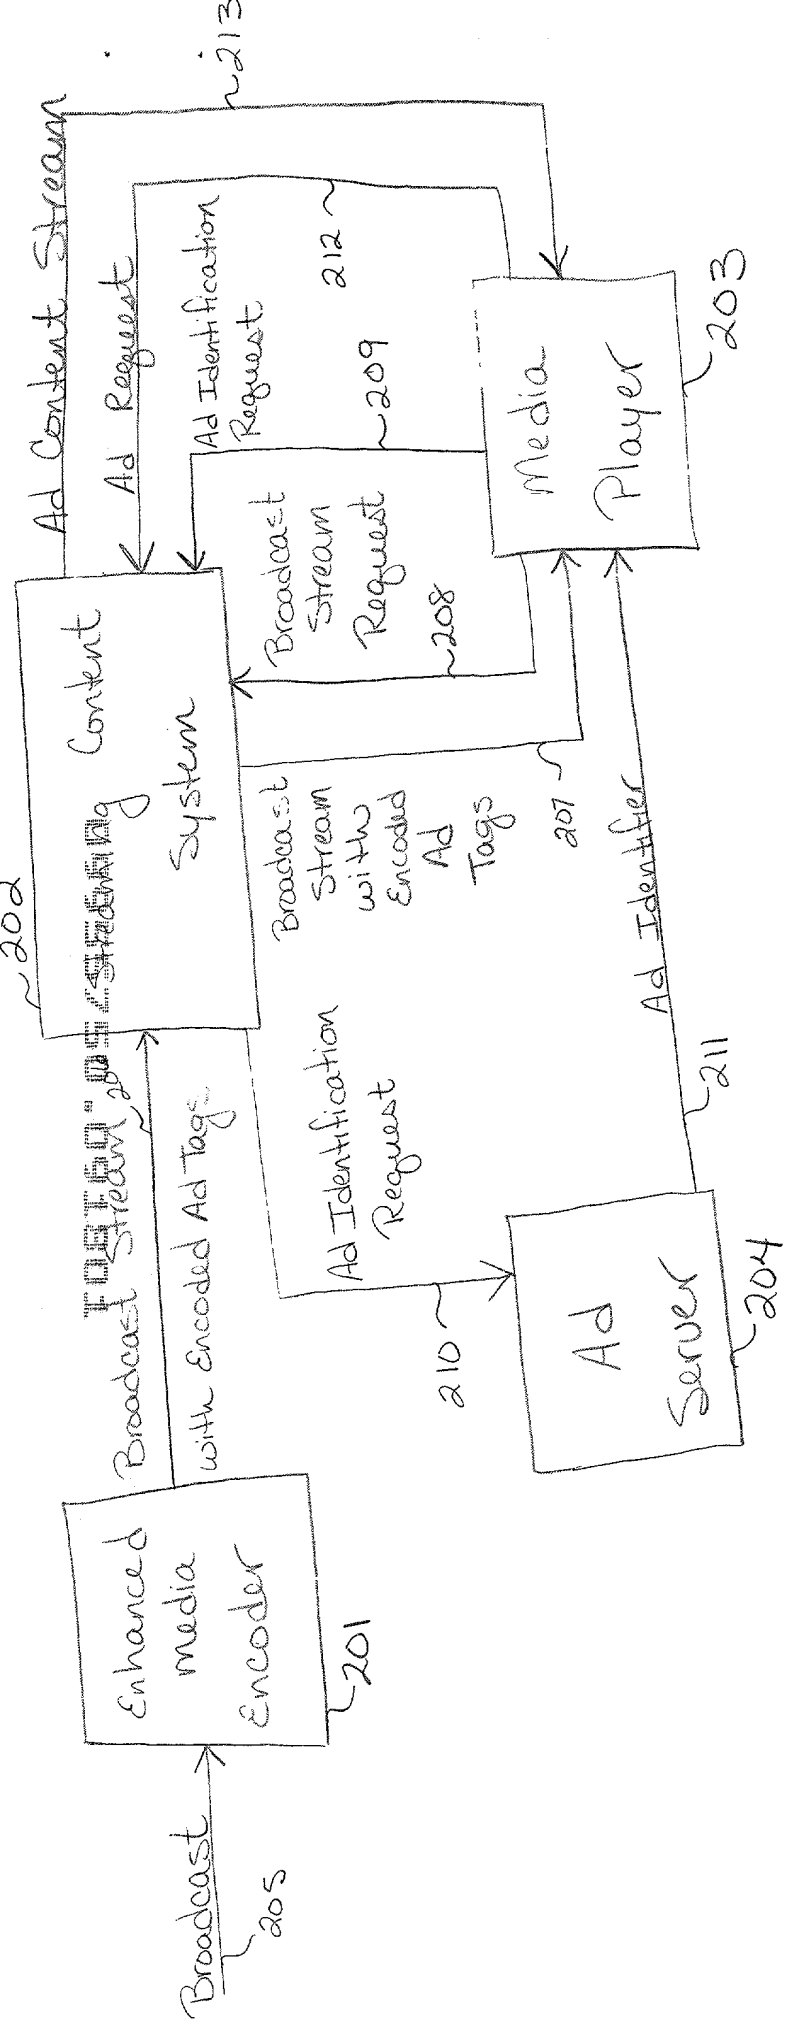 Broadcast
205
Enhanced
Media
Encoder
201
Broadcast Stream
206
with Encoded Ad Tags
202
Streaming Content
System
Ad Identification
Request
210
Ad
Server
204
Ad Identifier
211
Broadcast
Stream
with
Encoded
Ad
Tags
207
Broadcast
Stream
Request
208
Ad Identification
Request
209
Ad Request
212
Ad Content Stream
213
Media
Player
203